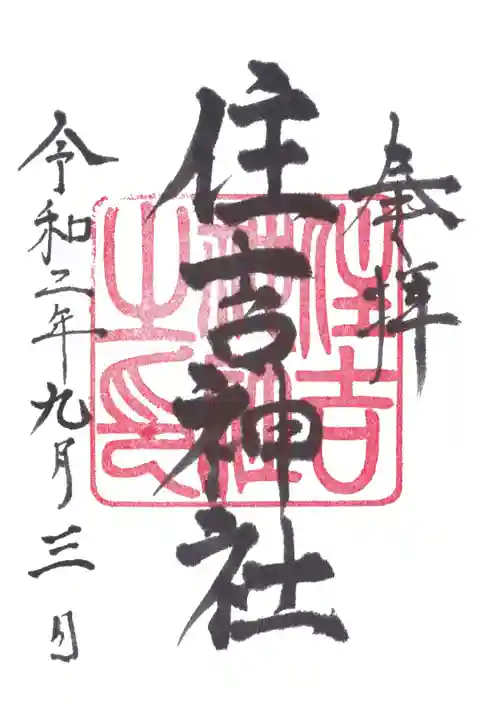 奉拝
住吉神社
令和二年九月三日
住吉神社之印